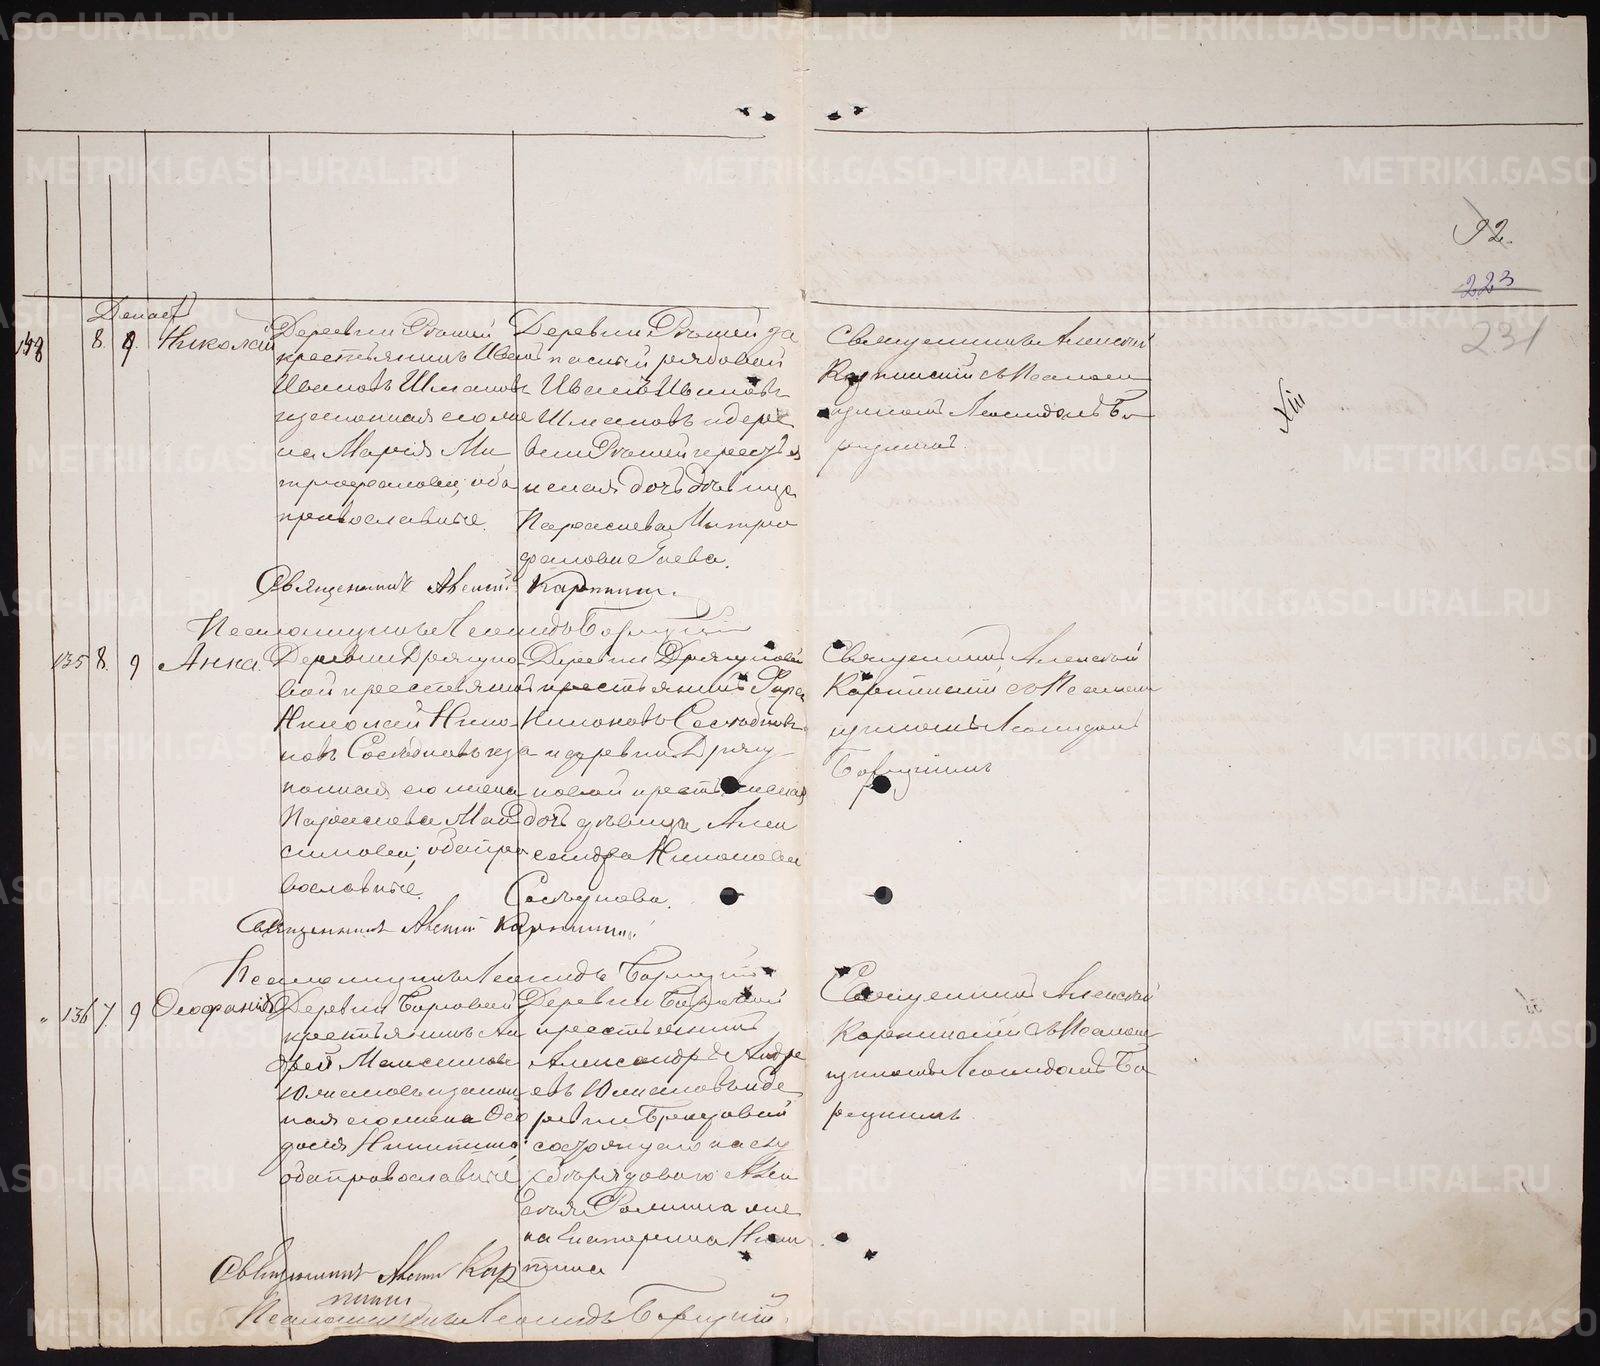 92.
223
231
Декабр
158 8. 9. Николай
Деревни
крестьянинъ Иванъ
Ивановъ Шмаковъ
и законная его же
на Мария Ми
трофановна, оба
православные.
Деревни за
пасный рядовой
Иванъ Ивановъ
Шмаковъ и дере
вни крестья
нская дочь девица
Параскева Митро
фановна Гаева.
Священникъ Алексий
Карпинский съ Псалом
щикомъ Леонидомъ Бо
рецкимъ
XIII
Священникъ Алексий Карпинский
Псаломщикъ Леонидъ Борецкий
135 8. 9 Анна.
Деревни Дрягуно
вой крестьянинъ
Николай Нико
новъ Состуновъ и за
конная его жена
Параскева Мак
симовна, оба пра
вославные.
Деревни Дрягуновой
крестьянинъ
Никоновъ
и деревни Дрягу
новой крестьянская
дочь девица Алек
сандра Никоновна
Сосунова.
Священникъ Алексий
Карпинский съ Псалом
щикомъ Леонидомъ
Борецкимъ
Священникъ Алексий Карпинский
Псаломщикъ Леонидъ Борецкий
136 7. 9 Феофания
Деревни Боровой
крестьянинъ Ан
дрей Максимовъ
Южаковъ и закон
ная его жена Фео
досия Никитина
оба православные
Деревни Боровой
крестьянинъ
Александръ Андре
евъ Южаковъ и де
ревни
состоящаго на слу
жбе рядового Алек
сея Фомина же
на Екатерина Ники
тина
Священникъ Алексий
Карпинский съ Псалом
щикомъ Леонидомъ Бо
рецкимъ
Священникъ Алексий Кар
пинский
Псаломщикъ Леонидъ Борецкий.
METRIKI.GASO-URAL.RU